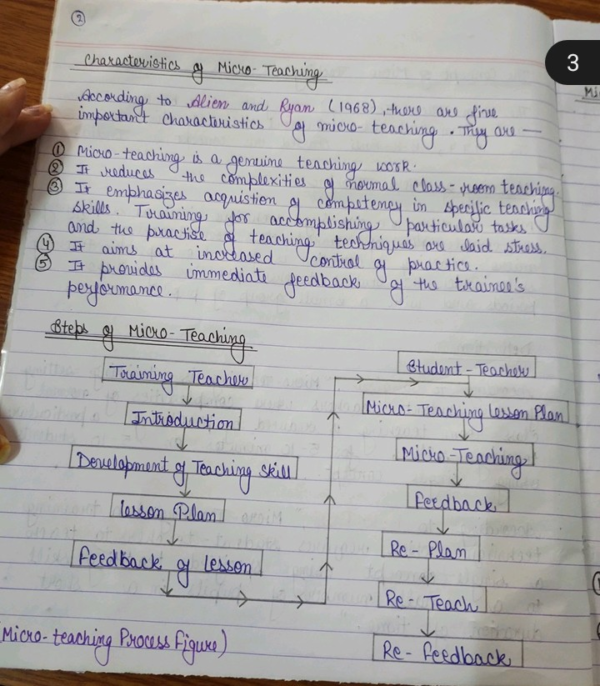 2
3
Characteristics of Micro-Teaching
According to Alien and Ryan (1968), there are five
important characteristics of micro-teaching. They are —
① Micro-teaching is a genuine teaching work.
② It reduces the complexities of normal class-room teaching.
③ It emphasizes acquistion of competency in specific teaching
skills. Training for accomplishing particular tasks
and the practise of teaching techniques are laid stress.
④ It aims at increased control of practice.
⑤ It provides immediate feedback of the trainee's
performance.
Steps of Micro-Teaching.
Training Teacher
Introduction
Development of Teaching Skill
Lesson Plan
Feedback of Lesson
Student-Teacher
Micro-Teaching Lesson Plan
Micro-Teaching
Feedback
Re-Plan
Re-Teach
Re-feedback
(Micro-teaching Process Figure)